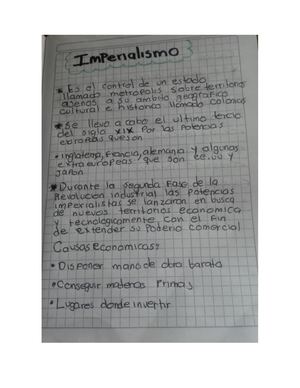 Imperialismo
* Es el control de un estado
llamado metropolis sobre territorios
agenos a su ambito geografico
cultural e historico llamado colonias
* Se llevo a cabo el ultimo tercio
del siglo XIX Por las Potencias
europeas que son
• Inglaterra, Francia, alemania y algunas
extraeuropeas que son EE.UU y
Japon
* Durante la segunda Fase de la
Revolucion industrial las Potencias
imperialistas se lanzaron en busca
de nuevos territorios economica
y tecnologicamente con el Fin
de estender su Poderio comercial
Causas economicas:
• Disponer mano de obra barata
• Conseguir materias Primas
• Lugares donde invertir